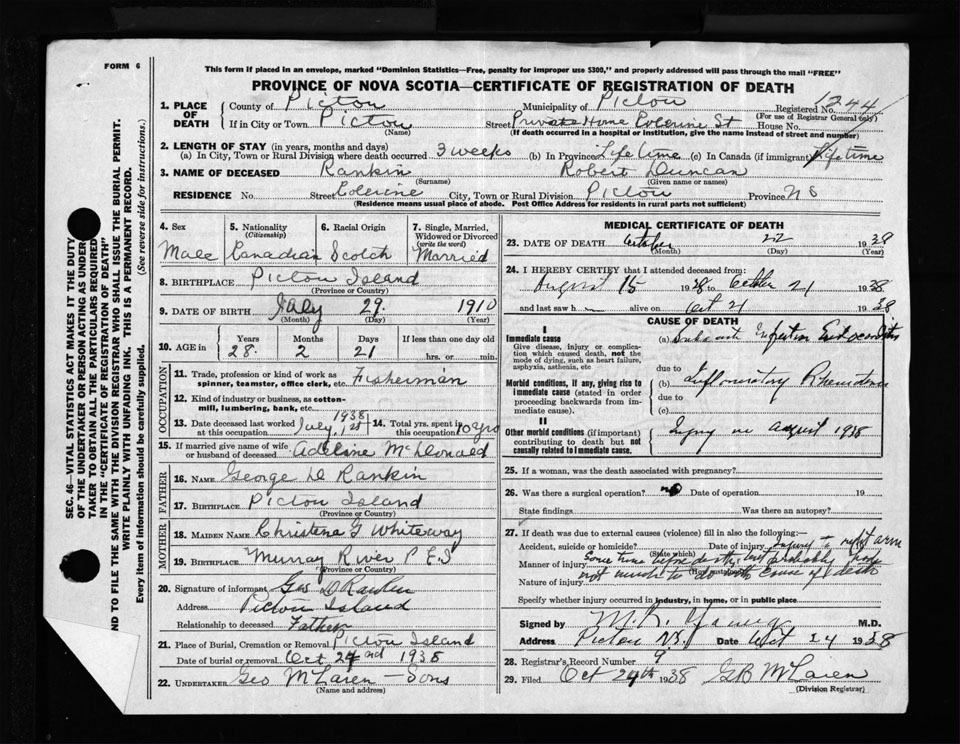 FORM 6
This form if placed in an envelope, marked "Dominion Statistics—Free, penalty for improper use $300," and properly addressed will pass through the mail "FREE"
PROVINCE OF NOVA SCOTIA—CERTIFICATE OF REGISTRATION OF DEATH
1. PLACE OF DEATH
County of Pictou Municipality of Pictou Registered No. 244
(For use of Registrar General only)
If in City or Town Pictou Street Private Home Coleraine St House No.
(Name) (If death occurred in a hospital or institution, give the name instead of street and number)
2. LENGTH OF STAY (in years, months and days)
(a) In City, Town or Rural Division where death occurred 3 weeks (b) In Province Life time (c) In Canada (if immigrant) Life time
3. NAME OF DECEASED Rankin Robert Duncan
(Surname) (Given name or names)
RESIDENCE No. Street City, Town or Rural Division Pictou Province N S
(Residence means usual place of abode. Post Office Address for residents in rural parts not sufficient)
4. Sex 5. Nationality 6. Racial Origin 7. Single, Married,
(Citizenship) Widowed or Divorced
(write the word)
Male Canadian Scotch Married
8. BIRTHPLACE Pictou Island
(Province or Country)
9. DATE OF BIRTH July 29. 1910
(Month) (Day) (Year)
10. AGE in Years Months Days If less than one day old
28. 2 21 hrs. or min.
OCCUPATION
11. Trade, profession or kind of work as
spinner, teamster, office clerk, etc. Fisherman
12. Kind of industry or business, as cotton-
mill, lumbering, bank, etc.
13. Date deceased last worked 1938 14. Total yrs. spent in
at this occupation July 1st this occupation 10 yrs
15. If married give name of wife
or husband of deceased Adeline McDonald
FATHER
16. NAME George D Rankin
17. BIRTHPLACE Pictou Island
(Province or Country)
MOTHER
18. MAIDEN NAME Christena G Whiteway
19. BIRTHPLACE Murray River P E I
(Province or Country)
20. Signature of informant Geo D Rankin
Address Pictou Island
Relationship to deceased Father
21. Place of Burial, Cremation or Removal Pictou Island
Date of burial or removal Oct 24 1938
22. UNDERTAKER Geo McLaren — Sons
(Name and address)
MEDICAL CERTIFICATE OF DEATH
23. DATE OF DEATH October 22 1938
(Month) (Day) (Year)
24. I HEREBY CERTIFY that I attended deceased from:
August 15 1938 to October 21 1938
and last saw h alive on Oct 21 1938
CAUSE OF DEATH
I
Immediate cause (a) Subacute Infection Endocarditis
Give disease, injury or complication which caused death, not the mode of dying, such as heart failure, asphyxia, asthenia, etc
due to
Morbid conditions, if any, giving rise to immediate cause (stated in order proceeding backwards from immediate cause).
(b) Inflammatory Rheumatism
due to
(c)
II
Other morbid conditions (if important) contributing to death but not causally related to immediate cause.
Injury in August 1938
25. If a woman, was the death associated with pregnancy?
26. Was there a surgical operation? no Date of operation 19
State findings Was there an autopsy?
27. If death was due to external causes (violence) fill in also the following:—
Accident, suicide or homicide? Date of injury injury to right arm
(State which)
Manner of injury some time before death, but probably had
Nature of injury not much to do with cause of death
Specify whether injury occurred in industry, in home, or in public place
Signed by M.R. Young M.D.
Address Pictou N.S. Date Oct 24 1938
28. Registrar's Record Number 9
29. Filed Oct 24th 1938 GB McLaren
(Division Registrar)
SEC. 46—VITAL STATISTICS ACT MAKES IT THE DUTY
OF THE UNDERTAKER OR PERSON ACTING AS UNDER-
TAKER TO OBTAIN ALL THE PARTICULARS REQUIRED
IN THE "CERTIFICATE OF REGISTRATION OF DEATH"
ND TO FILE THE SAME WITH THE DIVISION REGISTRAR WHO SHALL ISSUE THE BURIAL PERMIT.
WRITE PLAINLY WITH UNFADING INK. THIS IS A PERMANENT RECORD.
Every item of information should be carefully supplied. (See reverse side for instructions.)